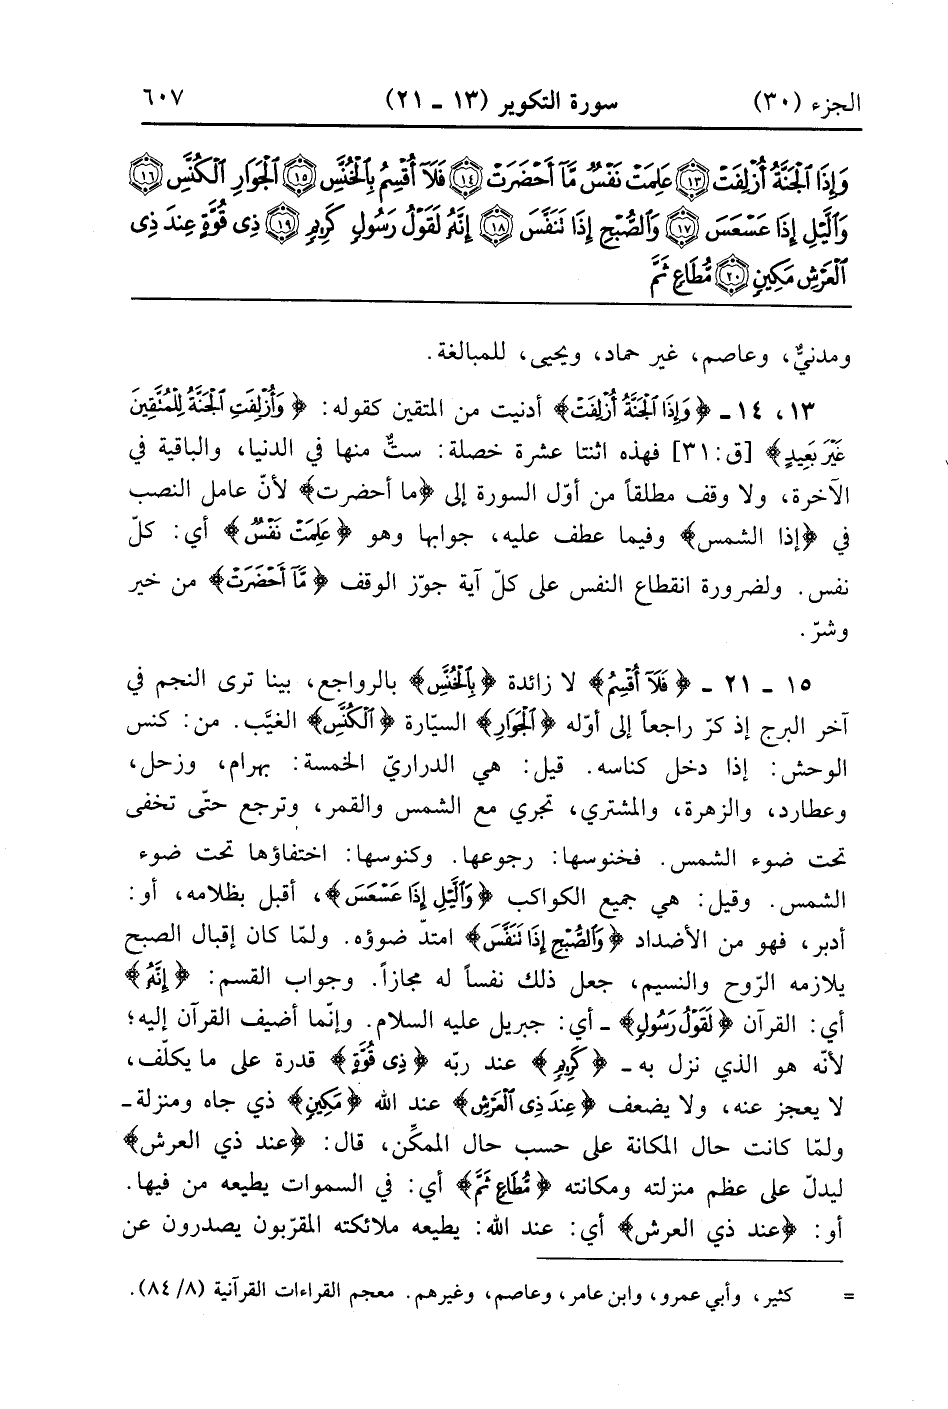 الجزء (٣٠) سورة التكوير (١٣ ـ ٢١) ٦٠٧
وَإِذَا ٱلْجَنَّةُ أُزْلِفَتْ ١٣ عَلِمَتْ نَفْسٌ مَّآ أَحْضَرَتْ ١٤ فَلَآ أُقْسِمُ بِٱلْخُنَّسِ ١٥ ٱلْجَوَارِ ٱلْكُنَّسِ ١٦
وَٱلَّيْلِ إِذَا عَسْعَسَ ١٧ وَٱلصُّبْحِ إِذَا تَنَفَّسَ ١٨ إِنَّهُۥ لَقَوْلُ رَسُولٍ كَرِيمٍ ١٩ ذِى قُوَّةٍ عِندَ ذِى
ٱلْعَرْشِ مَكِينٍ ٢٠ مُّطَاعٍ ثَمَّ
ومدنيٌّ، وعاصم، غير حماد، ويحيى، للمبالغة.
١٣، ١٤ ـ ﴿وَإِذَا ٱلْجَنَّةُ أُزْلِفَتْ﴾ أدنيت من المتقين كقوله: ﴿وَأُزْلِفَتِ ٱلْجَنَّةُ لِلْمُتَّقِينَ
غَيْرَ بَعِيدٍ﴾ [ق: ٣١] فهذه اثنتا عشرة خصلة: ستٌّ منها في الدنيا، والباقية في
الآخرة، ولا وقف مطلقاً من أوّل السورة إلى ﴿ما أحضرت﴾ لأنّ عامل النصب
في ﴿إذا الشمس﴾ وفيما عطف عليه، جوابها وهو ﴿عَلِمَتْ نَفْسٌ﴾ أي: كلّ
نفس. ولضرورة انقطاع النفس على كلّ آية جوّز الوقف ﴿مَّآ أَحْضَرَتْ﴾ من خير
وشرّ.
١٥ ـ ٢١ ـ ﴿فَلَآ أُقْسِمُ﴾ لا زائدة ﴿بِٱلْخُنَّسِ﴾ بالرواجع، بينا ترى النجم في
آخر البرج إذ كرّ راجعاً إلى أوّله ﴿ٱلْجَوَارِ﴾ السيّارة ﴿ٱلْكُنَّسِ﴾ الغيَّب. من: كنس
الوحش: إذا دخل كناسه. قيل: هي الدراريّ الخمسة: بهرام، وزحل،
وعطارد، والزهرة، والمشتري، تجري مع الشمس والقمر، وترجع حتّى تخفى
تحت ضوء الشمس. فخنوسها: رجوعها. وكنوسها: اختفاؤها تحت ضوء
الشمس. وقيل: هي جميع الكواكب ﴿وَٱلَّيْلِ إِذَا عَسْعَسَ﴾، أقبل بظلامه، أو:
أدبر، فهو من الأضداد ﴿وَٱلصُّبْحِ إِذَا تَنَفَّسَ﴾ امتدّ ضوؤه. ولمّا كان إقبال الصبح
يلازمه الرّوح والنسيم، جعل ذلك نفساً له مجازاً. وجواب القسم: ﴿إِنَّهُۥ﴾
أي: القرآن ﴿لَقَوْلُ رَسُولٍ﴾ ـ أي: جبريل عليه السلام. وإنّما أضيف القرآن إليه؛
لأنّه هو الذي نزل به ـ ﴿كَرِيمٍ﴾ عند ربّه ﴿ذِى قُوَّةٍ﴾ قدرة على ما يكلّف،
لا يعجز عنه، ولا يضعف ﴿عِندَ ذِى ٱلْعَرْشِ﴾ عند الله ﴿مَكِينٍ﴾ ذي جاه ومنزلة ـ
ولمّا كانت حال المكانة على حسب حال الممكِّن، قال: ﴿عند ذي العرش﴾
ليدلّ على عظم منزلته ومكانته ﴿مُّطَاعٍ ثَمَّ﴾ أي: في السموات يطيعه من فيها.
أو: ﴿عند ذي العرش﴾ أي: عند الله: يطيعه ملائكته المقرّبون يصدرون عن
= كثير، وأبي عمرو، وابن عامر، وعاصم، وغيرهم. معجم القراءات القرآنية (٨/ ٨٤).